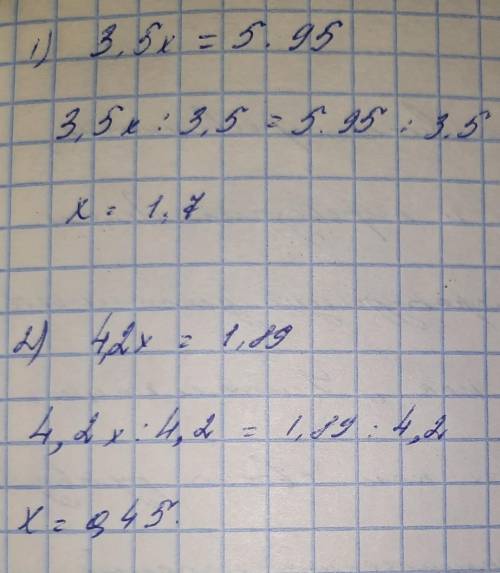 1) 3,5x = 5.95
3,5x : 3,5 = 5.95 : 3.5
x = 1,7
2) 4,2x = 1,89
4,2x : 4,2 = 1,89 : 4,2
x = 0,45.